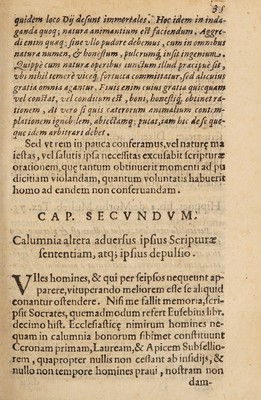 85
quidem loco Dij desunt immortales. Hoc idem in inda-
ganda quoq; natura animantium est faciendum. Aggre-
di enim quaq; sine vllo pudore debemus, cum in omnibus
natura numen, & honestum, pulcrumq; insit ingenium.
Quippè cum natura operibus iunctum illud præcipuè sit,
vbi nihil temerè vicèq; fortuita committatur, sed alicuius
gratia omnia agantur. Finis enim cuius gratia quicquam
vel constat, vel conditum est, boni, honestiq; obtinet ra-
tionem, at vero si quis caterum animalium contem-
plationem ignobilem, abiectamq; putat, iam hic de se quo-
que idem arbitrari debet.
Sed vt rem in pauca conferamus, vel naturę ma
iestas, vel salutis ipsa necessitas excusabit scripturæ
orationem, quę tantum obtinuerit momenti ad pu
dicitiam violandam, quantum voluntatis habuerit
homo ad eandem non conseruandam.
CAP. SECVNDVM.
Calumnia altera aduersus ipsius Scripturæ
sententiam, atq; ipsius depulsio.
Vlles homines, & qui per seipsos nequeunt ap-
parere, vituperando meliorem esse se aliquid
conantur ostendere. Nisi me fallit memoria, scri-
psit Socrates, quemadmodum refert Eusebius libr.
decimo hist. Ecclesiasticę nimirum homines ne-
quam in calumnia bonorum sibimet constituunt
Coronam primam, Lauream, & Apicem Subsellio-
rem, quapropter nullis non cessant ab insidijs, &
nullo non tempore homines praui, nostram non
dam-